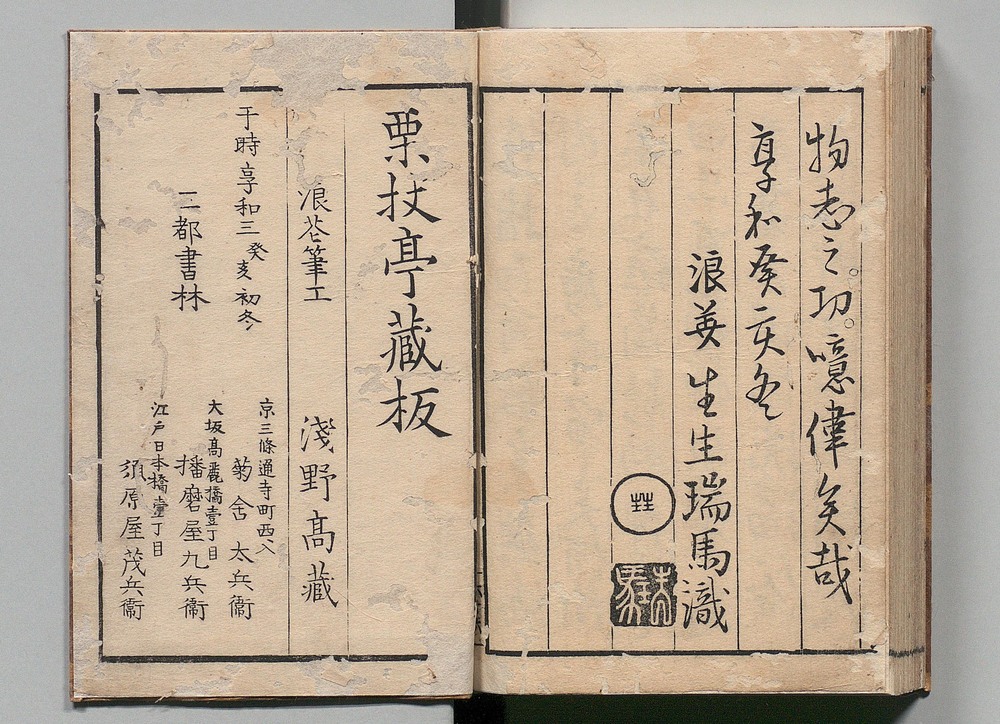 物志之功。噫偉矣哉
享和癸亥冬
浪華生生瑞馬識
栗杖亭藏板
浪花筆工 淺野高藏
于時享和三癸亥初冬
二都書林
京三條通寺町西入
菊舍太兵衞
大坂高麗橋壹丁目
播磨屋九兵衞
江戸日本橋壹丁目
須原屋茂兵衞